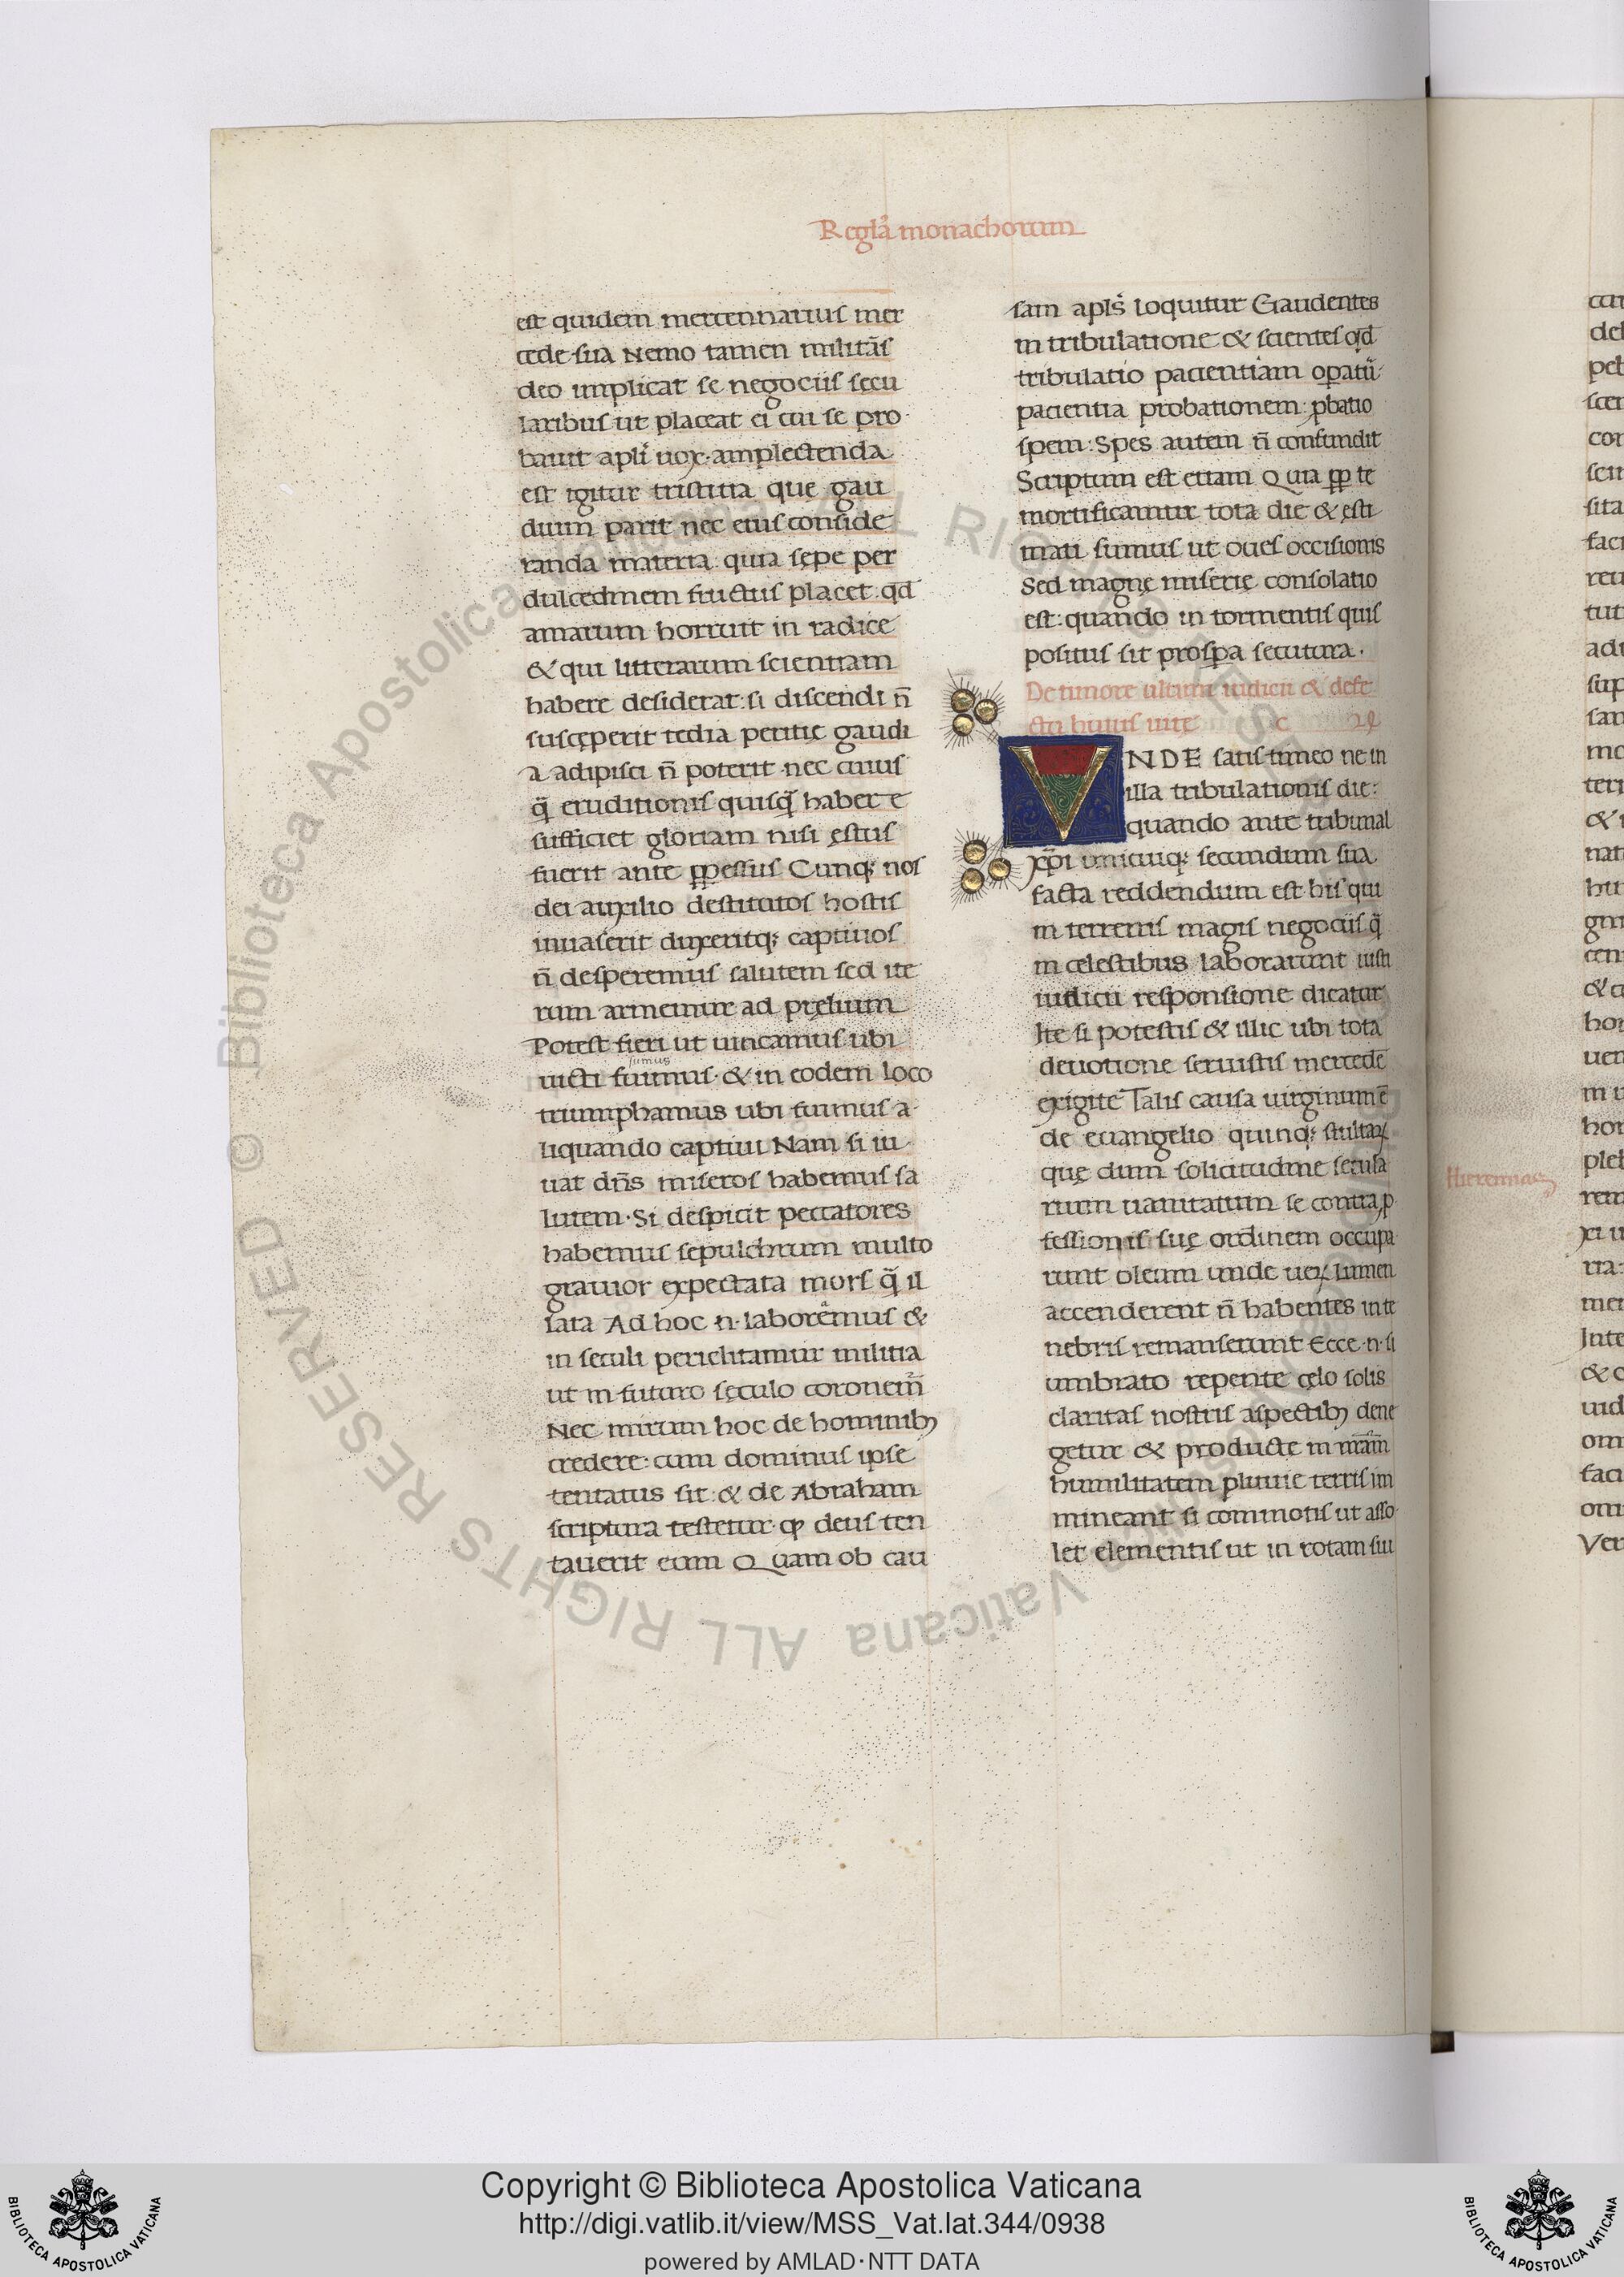 Regla᷎ monachorum
est quidem mercennarius mer
cede sua Nemo tamen militās
deo implicat se negociis secu
laribus ut placeat ei cui se pro
bauit apli uox. amplectenda
est igitur tristitia que gau
dium parit nec eius conside
randa materia. quia sępe per
dulcedinem fructus placet. qd
amarum horruit in radice
& qui litterarum scientiam
habere desiderat: si discendi n̄
susceperit tedia peritię gaudi
a adipisci n̄ poterit. nec cuius
q̄ eruditionis quisq̄ habere
sufficiet gloriam nisi ęstus
fuerit ante ꝑpessus Cunq; nos
dei auxilio destitutos hostis
inuaserit duxeritq; captiuos
n̄ desperemus salutem sed ite
rum armemur ad prelium
Potest fieri ut uincamus ubi
sumus
uicti fuimus. & in eodem loco
triumphamus ubi fuimus a
liquando captiui Nam si iu
uat dn̄s miseros habemus sa
lutem. Si despicit peccatores
habemus sepulchrum multo
grauior expectata mors q̄ il
lata Ad hoc .n. laborem᷎us &
in seculi periclitamur militia
ut in futuro seculo coronem᷎
Nec mirum hoc de hominibꝫ
credere: cum dominus ipse
tentatus sit: & de Abraham
scriptura testetur. ꝙ deus ten
tauerit eum Quam ob cau
sam apls̄ loquitur Gaudentes
in tribulatione & scientes qd
tribulatio pacientiam oꝑatur᷎
pacientia probationem: ꝓbatio
spem: Spes autem n̄ confundit
Scriptum est etiam Quia ꝓp te
mortificamur tota die & ęsti
mati sumus ut oues occisionis
Sed magnę miserię consolatio
est: quando in tormentis quis
positus sit prosꝑa secutura.
De timore ultimi iudicii & defe
ctu huius uite
VNDE satis timeo ne in
illa tribulationis die:
quando ante tribunal
xp̄i unicuiq; secundum sua
facta reddendum est his qui
in terrenis magis negociis q̄
in celestibus laborarunt iusti
iudicii responsione dicatur
Ite si potestis & illic ubi tota
deuotione seruistis mercedē
exigite Talis causa uirginum ē
de euangelio quinq; stultaꝝ
quę dum solicitudine secula
rium uanitatum se contra ꝓ
fessionis suę ordinem occupa
runt oleum unde ueꝝ lumen
accenderent n̄ habentes in te
nebris remanserunt Ecce .n. si
umbrato repente cęlo solis
claritas nostris aspectibꝫ dene
getur & producte in nr̄am
humilitatem pluuie terris im
mineant si commotis ut asso
let elementis ut in rotam siu
Hieremias
Copyright © Biblioteca Apostolica Vaticana
http://digi.vatlib.it/view/MSS_Vat.lat.344/0938
powered by AMLAD·NTT DATA